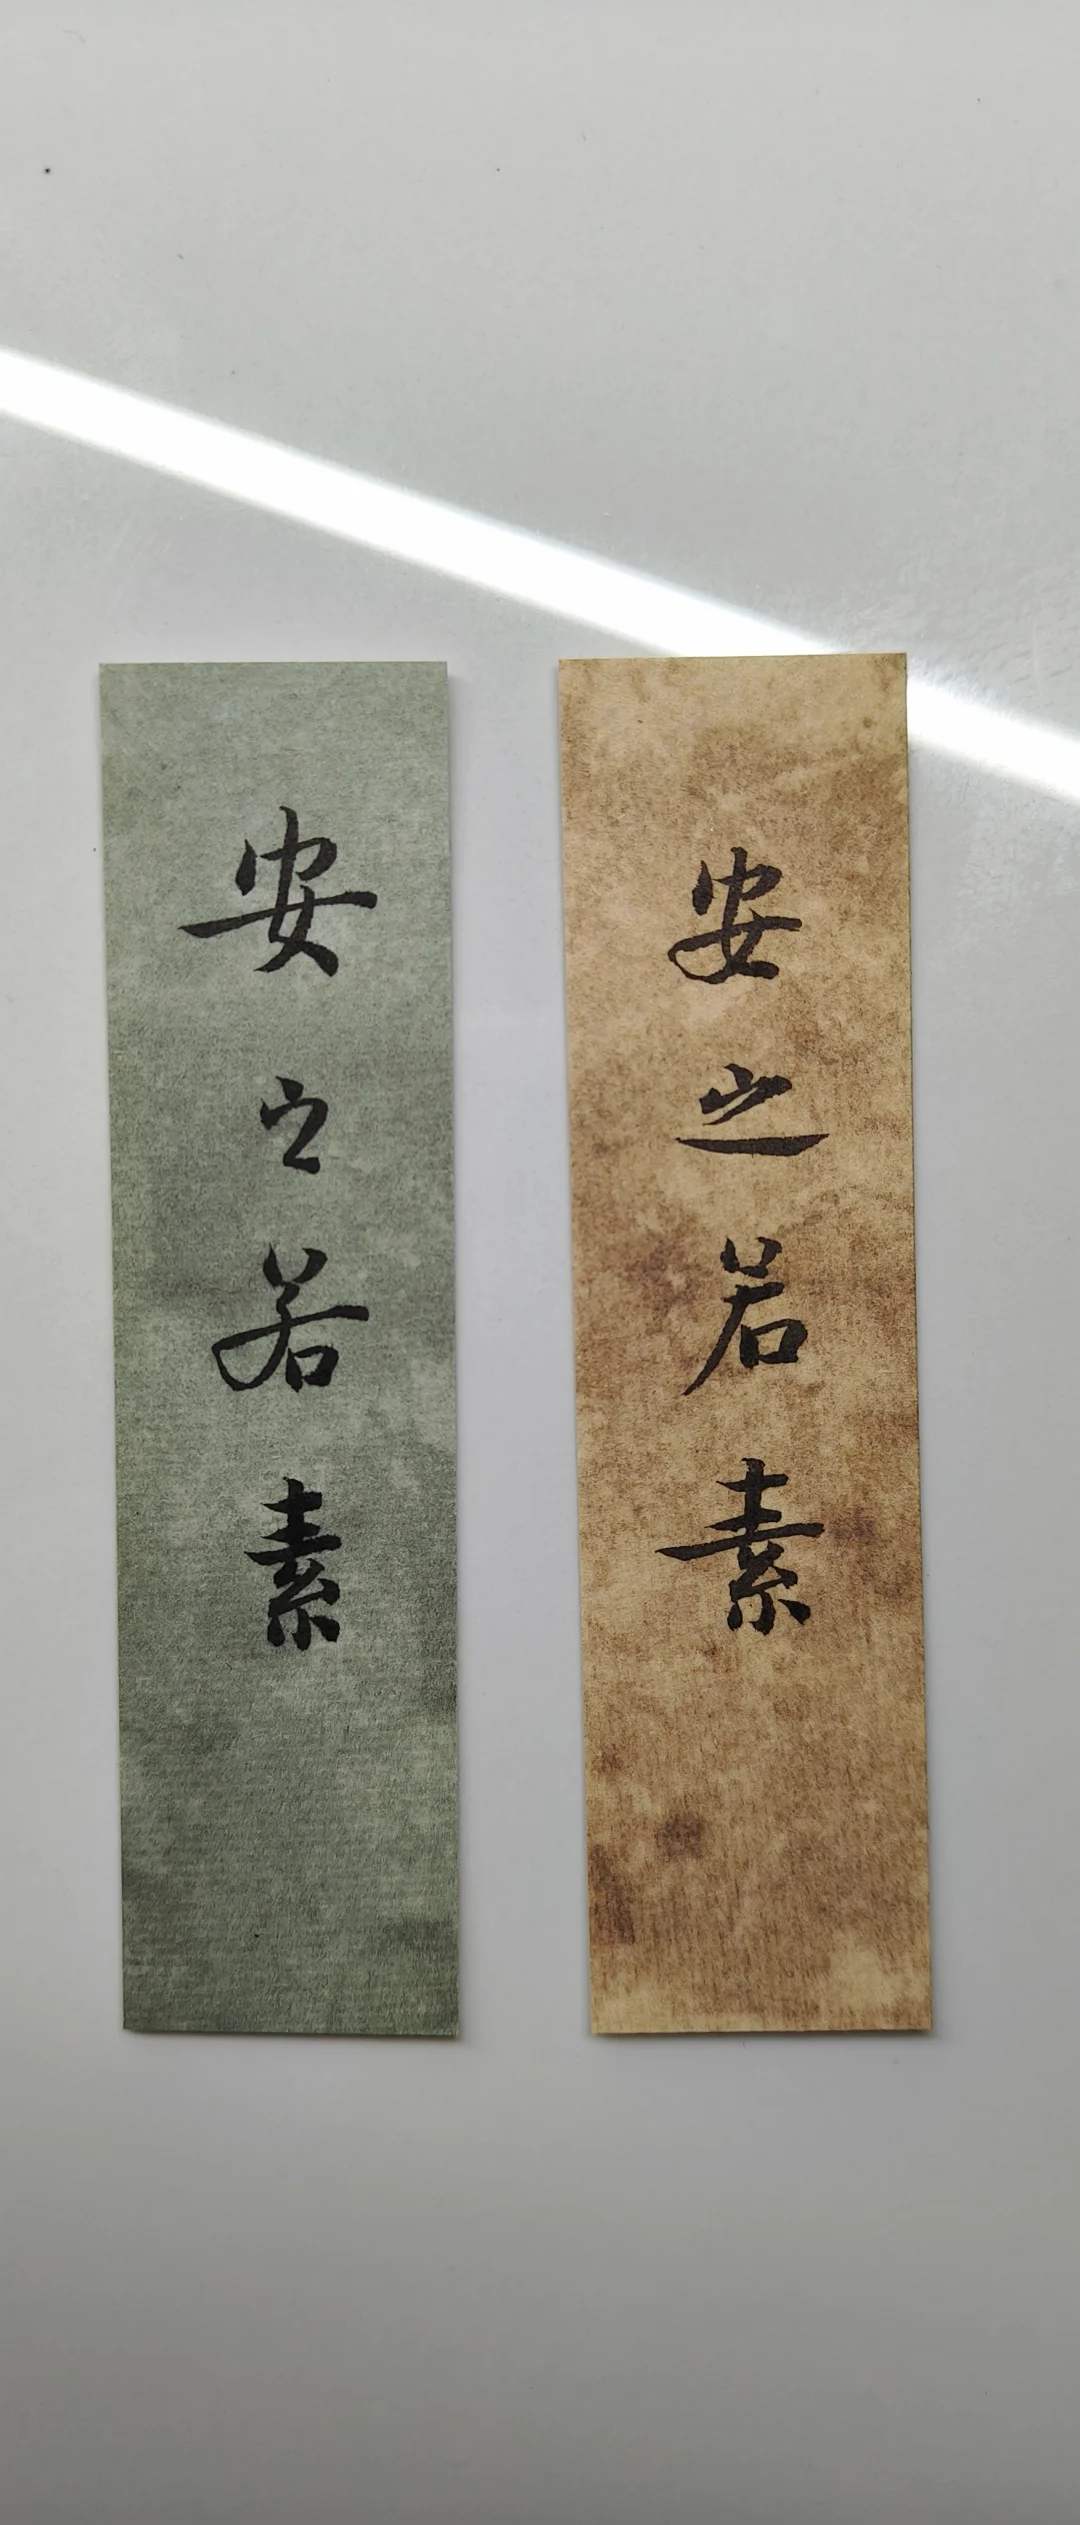 安之若素
安之若素